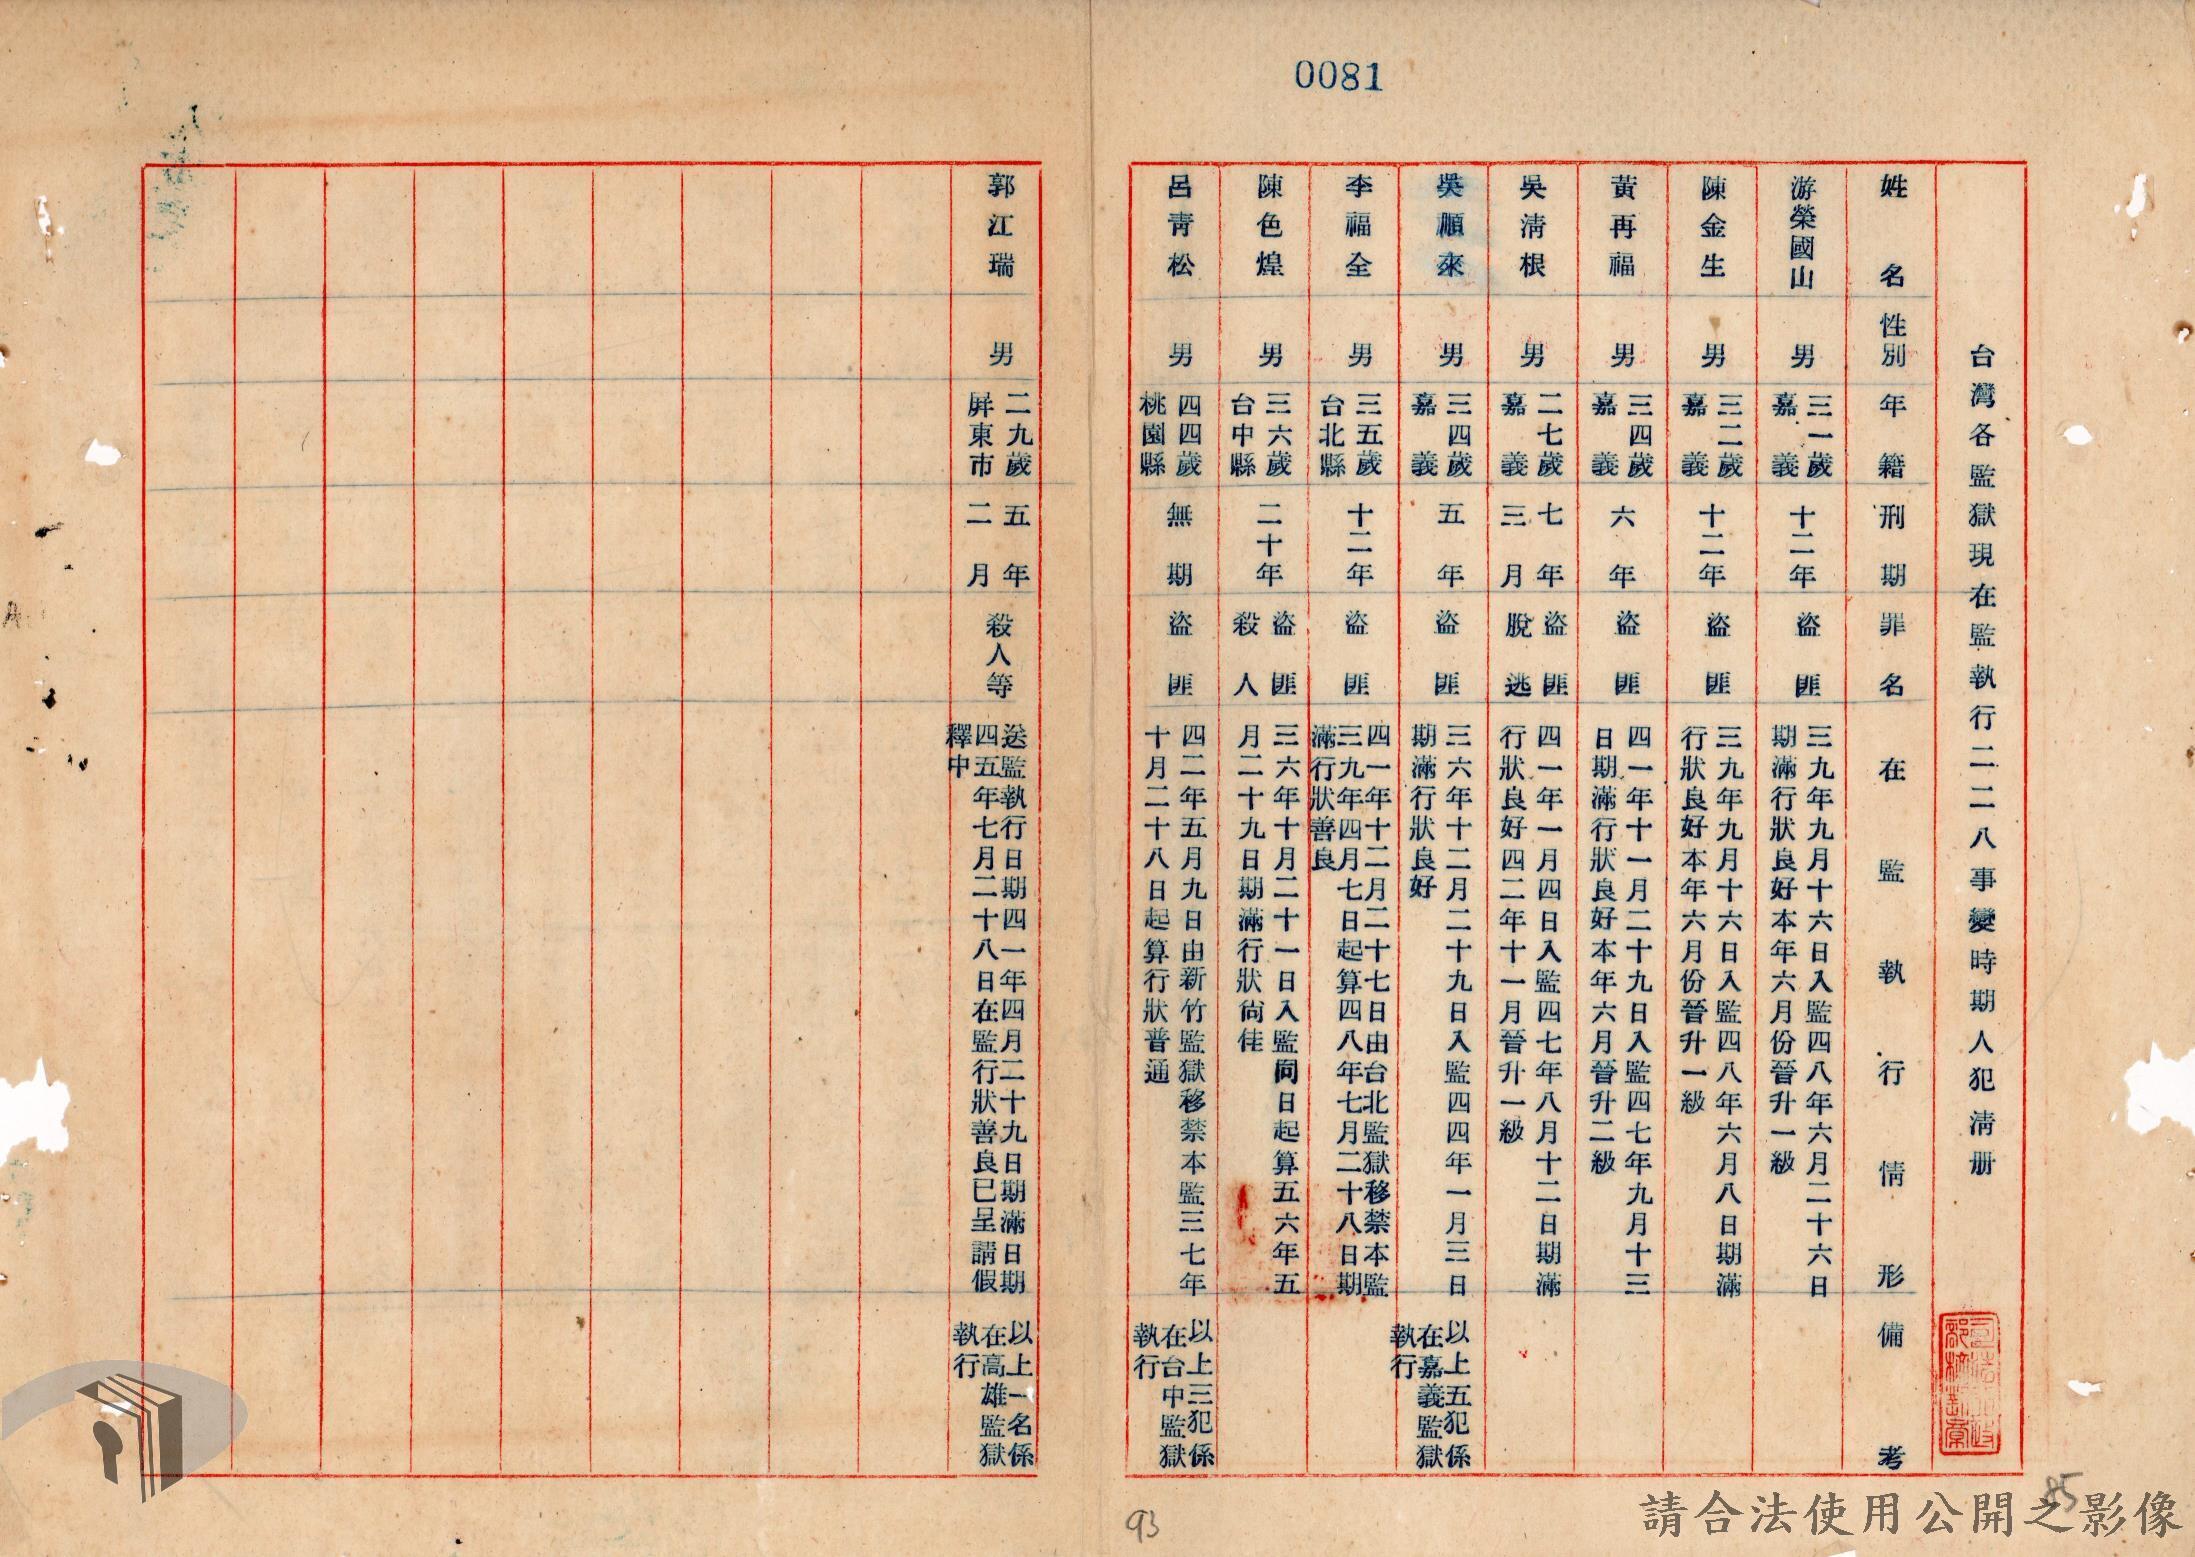 0081
台灣各監獄現在監執行二二八事變時期人犯清册
姓名 性別 年籍 刑期 罪名 在監執行情形 備考
游榮國山 男 三一歲 嘉義 十二年 盜匪 三九年九月十六日入監四八年六月二十六日期滿行狀良好本年六月份晉升一級
陳金生 男 三二歲 嘉義 十二年 盜匪 三九年九月十六日入監四八年六月八日期滿行狀良好本年六月份晉升一級
黃再福 男 三四歲 嘉義 六年 盜匪 四一年十一月二十九日入監四七年九月十三日期滿行狀良好本年六月晉升二級
吳清根 男 二七歲 嘉義 七年三月 盜匪脫逃 四一年一月四日入監四七年八月十二日期滿行狀良好四二年十一月晉升一級
吳順來 男 三四歲 嘉義 五年 盜匪 三六年十二月二十九日入監四四年一月三日期滿行狀良好 以上五犯係在嘉義監獄執行
李福全 男 三五歲 台北縣 十二年 盜匪 四一年十二月二十七日由台北監獄移禁本監三九年四月七日起算四八年七月二十八日期滿行狀善良
陳色煌 男 三六歲 台中縣 二十年 盜匪殺人 三六年十月二十一日入監同日起算五六年五月二十九日期滿行狀尚佳
呂青松 男 四四歲 桃園縣 無期 盜匪 四二年五月九日由新竹監獄移禁本監三七年十月二十八日起算行狀普通 以上三犯係在台中監獄執行
郭江瑞 男 二九歲 屏東市 五年二月 殺人等 送監執行日期四一年四月二十九日期滿日期四五年七月二十八日在監行狀善良已呈請假釋中 以上一名係在高雄監獄執行
93
85
請合法使用公開之影像